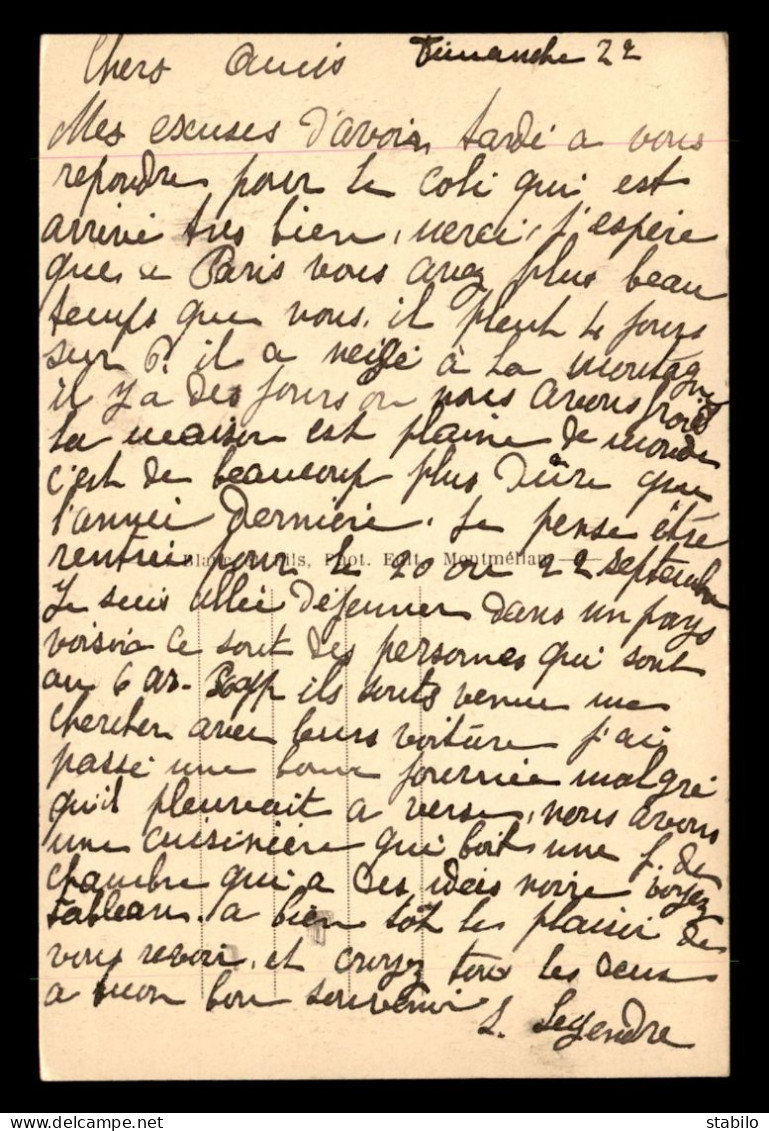 Chers Amis Dimanche 22
Mes excuses d'avoir tardé a vous
repondre pour le coli qui est
arrivé tres bien, merci, J'espère
que a Paris vous avez plus beau
temps que nous. il pleut 4 jours
sur 6. il a neigé à la montagne
il y a des jours ou nous avons froid
la maison est plaine de monde
c'est de beaucoup plus dûre que
l'année derniere. Je pense être
rentrée pour le 20 ou 22 septembre
Blanc et Fils, Phot. Edit., Montmélian
Je suis allée déjeuner dans un pays
voisin ce sont des personnes qui sont
au 6 ils sonts venue me
chercher avec leurs voiture j'ai
passé une bonne journée malgré
qu'il pleuvait a verse, nous avons
une cuisinière qui boit une f. de
chambre qui a des idées noire voyez
tableau. a bien tôt le plaisir de
vous revoir, et croyez tous les deux
a mon bon souvenir
L. Legendre
delcampe.net
stabilo